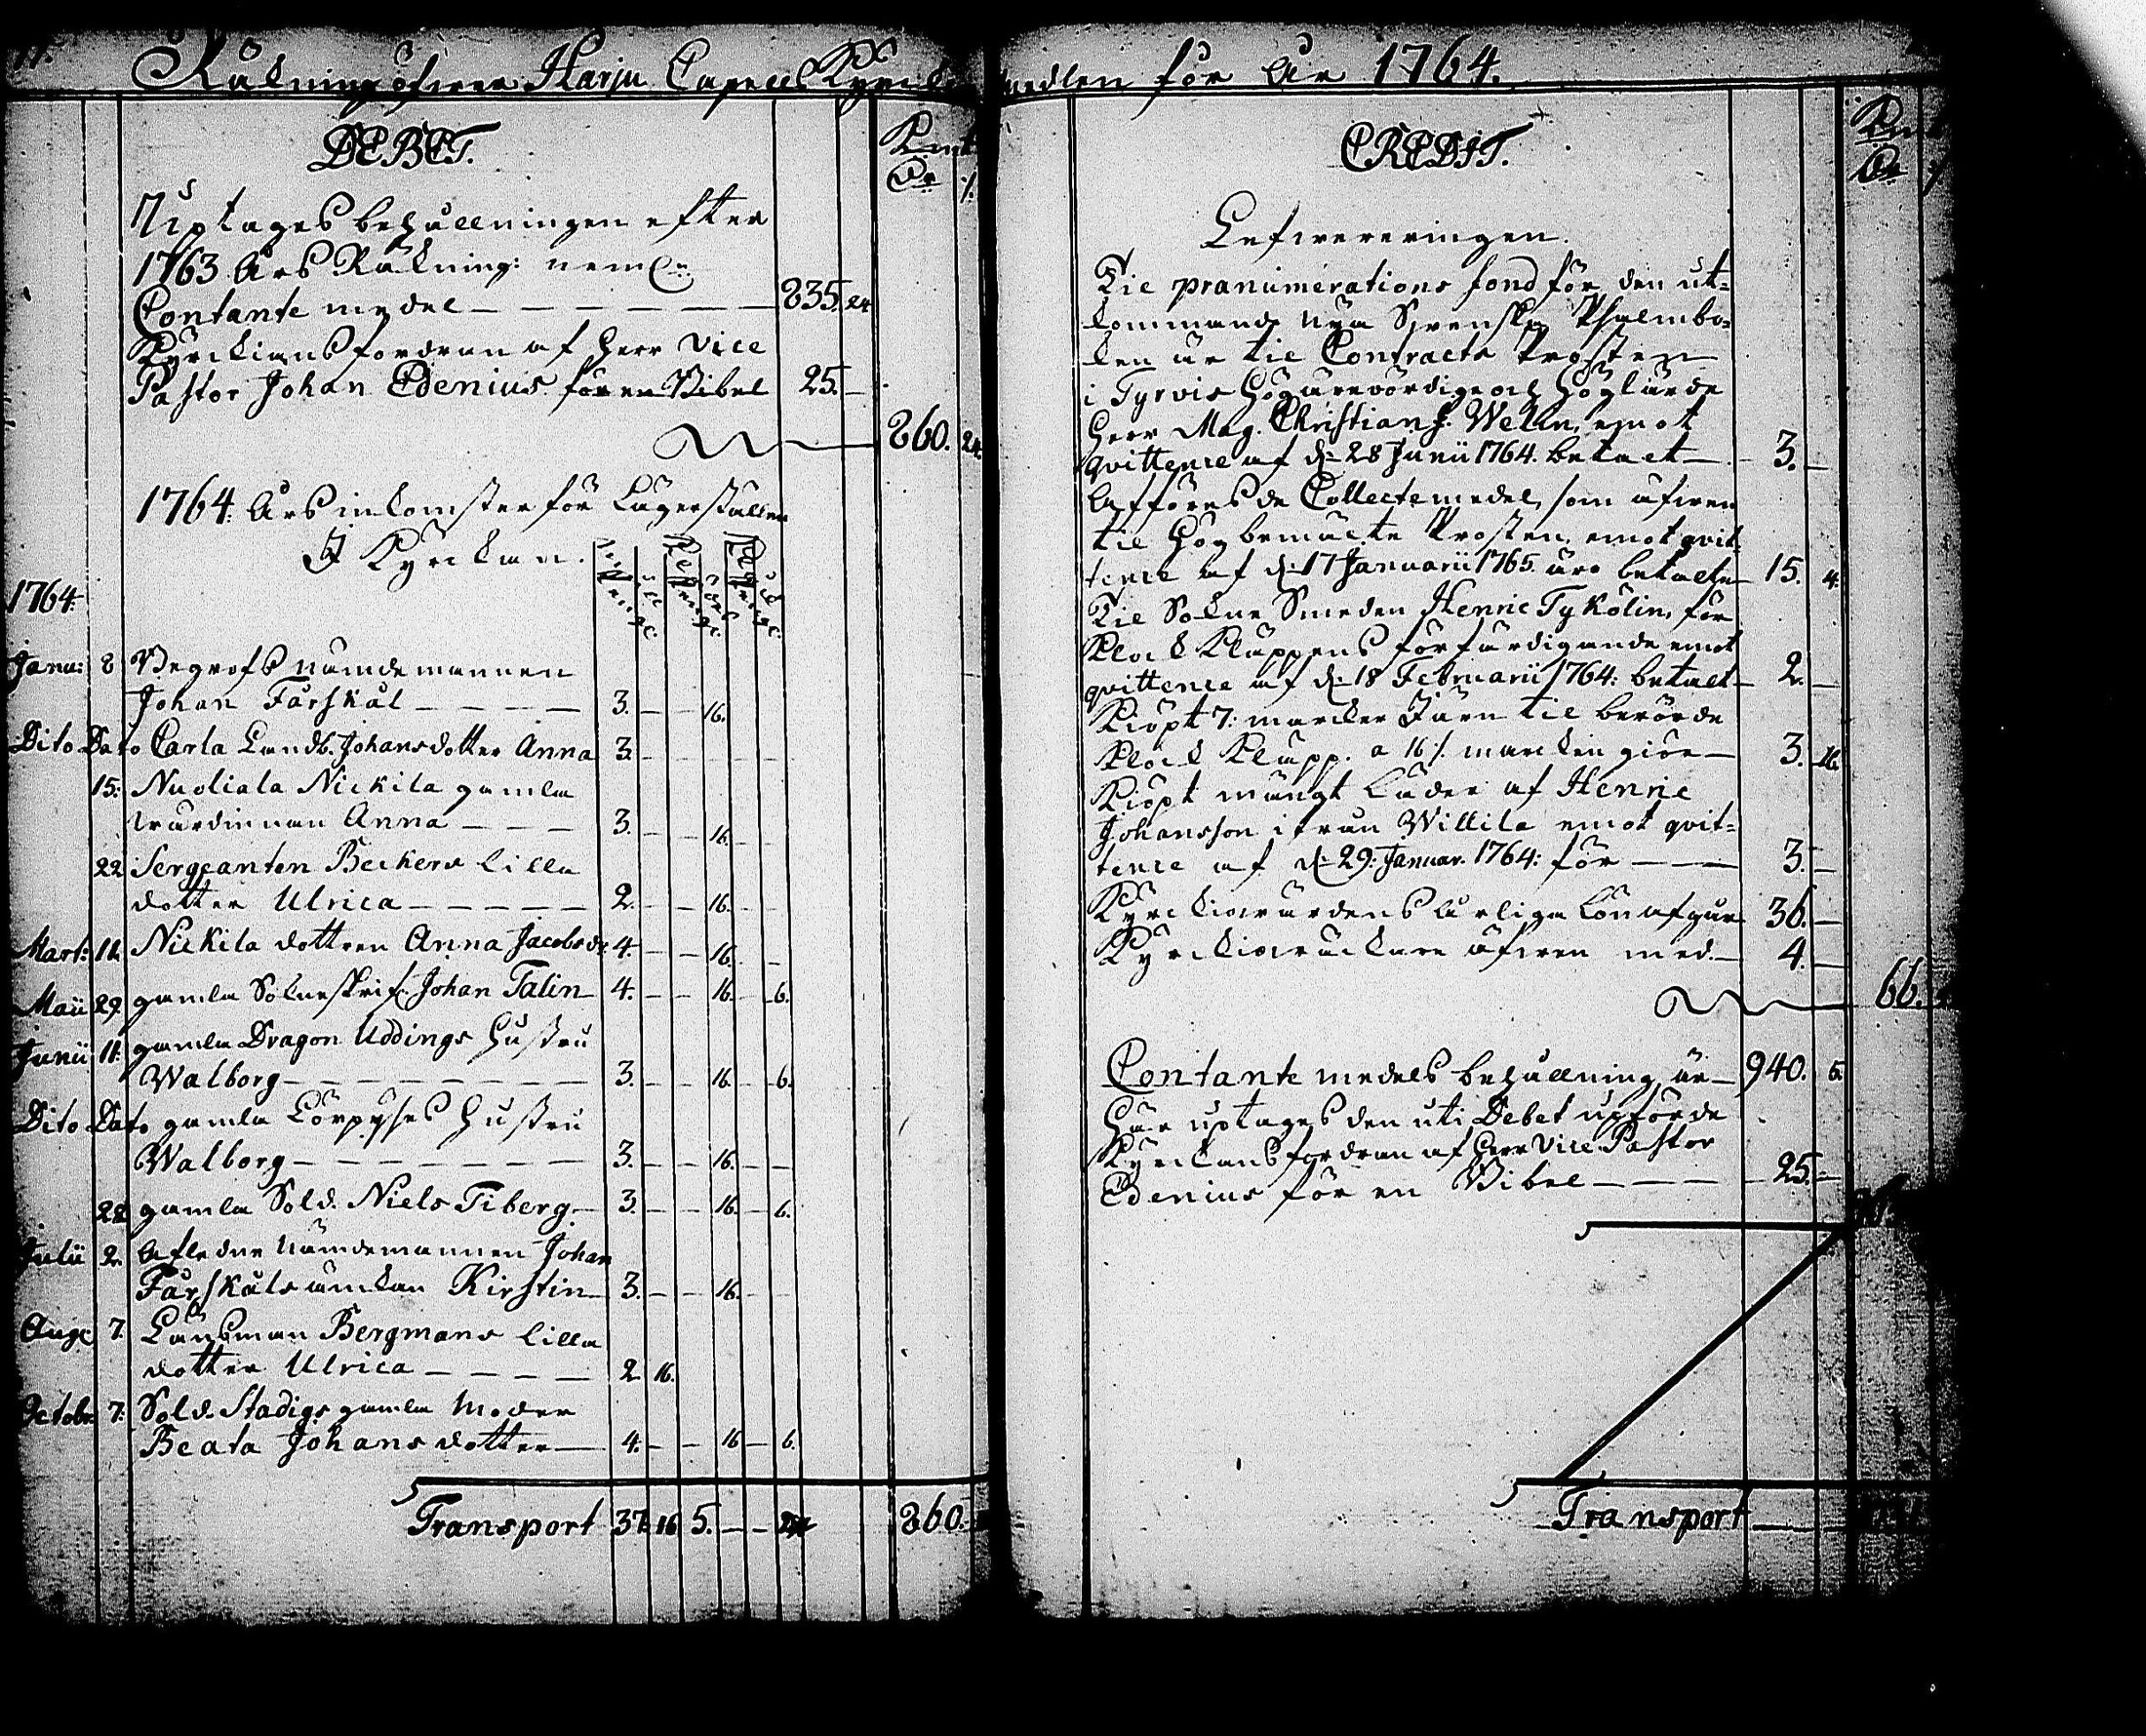 Räkning öfwer Harju Capell Kyrck
DEBET.
Kmt
Dr /.
Uptages behållningen efter
1763 Års Räkning: neml:
Contante medel — — — — — 835. 24
Kyrckians fordran af Herr Vice
Pastor Johan Edenius för en Bibel 25. —
860. 24.
1764: Års inkomster för Lägerställen
I Kyrckan.
1764.
Janu: 8 Begrofs nämdemannen
Johan Fårskål — — — — 3. — — 16.
Dito Dato Carla Landb. Johansdotter Anna 3. — — — — —
15: Nuoliala Nickila gamla
wärdinnan Anna — — — 3. — — 16. — —
22 Sergeanten Beckers lilla
dotter Ulrica — — — — — 2. — — 16. — —
Mart: 11. Nickila dottren Anna Jacobsdr 4. — — 16. — —
Maii 29. gamla Sokneskrif. Johan Talin — 4. — — 16. — 6.
Junii 11. gamla Dragon Uddings hustru
Walborg — — — — — — — 3. — — 16. — 6.
Dito Dato gamla Törpyses hustru
Walborg — — — — — — — 3. — — 16. — —
28 gamla Sold. Niels Tiberg. — 3. — — 16. — 6.
Julii 2. Afledne nämdemannen Johan
Fårskåls änckan Kirstin — 3. — — 16. — —
Aug: 7. Länsman Bergmans lilla
dotter Ulrica — — — — — 2 16.
Octobr 7: Sold. Stadigs gamla moder
Beata Johansdotter — 4. — — 16 — 6.
Transport 37. 16 5. — — 24 860.
medlen för År 1764.
CREDIT.
Kmt
Dr
Lefwereringen.
Till pranumerations fond för den ut-
kommande nya Swenska Psalmbo-
ken är till Contracts Prosten
i Tyrvis Högärevördige och Höglärde
Herr Mag. Christian J. Welin, emot
qvittence af d: 28 Junii 1764. betalt — 3. —
Afföres de Collecte medel, som äfwen
til Högbemälte Prosten, emot qvit-
tence af d: 17 Januarii 1765 äro betalte — 15. 4.
Till Sokne Smeden Henric Tykölin, för
Klock Kläppens förfärdigande emot
qvittence af d: 18 Februarii 1764: betalt — 2. —
Kiöpt 7: marcker Järn til berörde
Klock Kläpp. a 16 /. marcken giör — 3. 16.
Kiöpt mängt Läder af Henric
Johansson ifrån Willila emot qvit-
tence af d: 29: Januar. 1764: för — — 3. —
Kyrckiowärdens Årliga Lön afgår 36. —
Kyrckiowäckare äfwen med. — 4. —
66.
Contante medels behållning, är — 940. 6.
Här uptages den uti Debet upförde
Kyrckans fordran af Herr Vice Pastor
Edenius för en Bibel — — — — 25. —
Transport — —